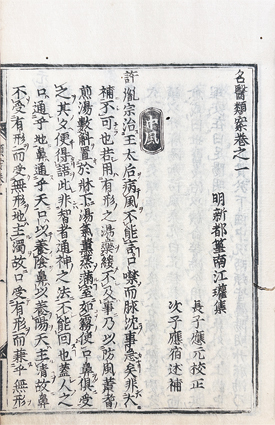 名醫類案卷之一
明新都篁南江瓘集
長子應元校正
次子應宿述補
中風
許胤宗治王太后病風不能言口噤而脉沈事急矣非大
補不可也若用有形之湯藥緩不及事乃以防風黃耆
煎湯數斛置於牀下湯氣薰蒸滿室如霧使口鼻俱受
之其夕便得語此非智者通神之法不能囘也蓋人之
口通乎地鼻通乎天口以養陰鼻以養陽天主清故鼻
不受有形而受無形地主濁故口受有形而兼乎無形